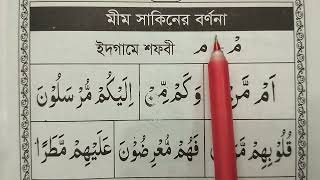 মীম সাকিনের বর্ণনা
ইদগামে শফবী مْ م
اَمْ مَّنْ وَكَمْ مِّنْ اِلَيْكُمْ مُّرْسَلُوْنَ
قُلُوْبِهِمْ فَهُمْ مُّعْرِضُوْنَ عَلَيْهِمْ مَّطَرًا